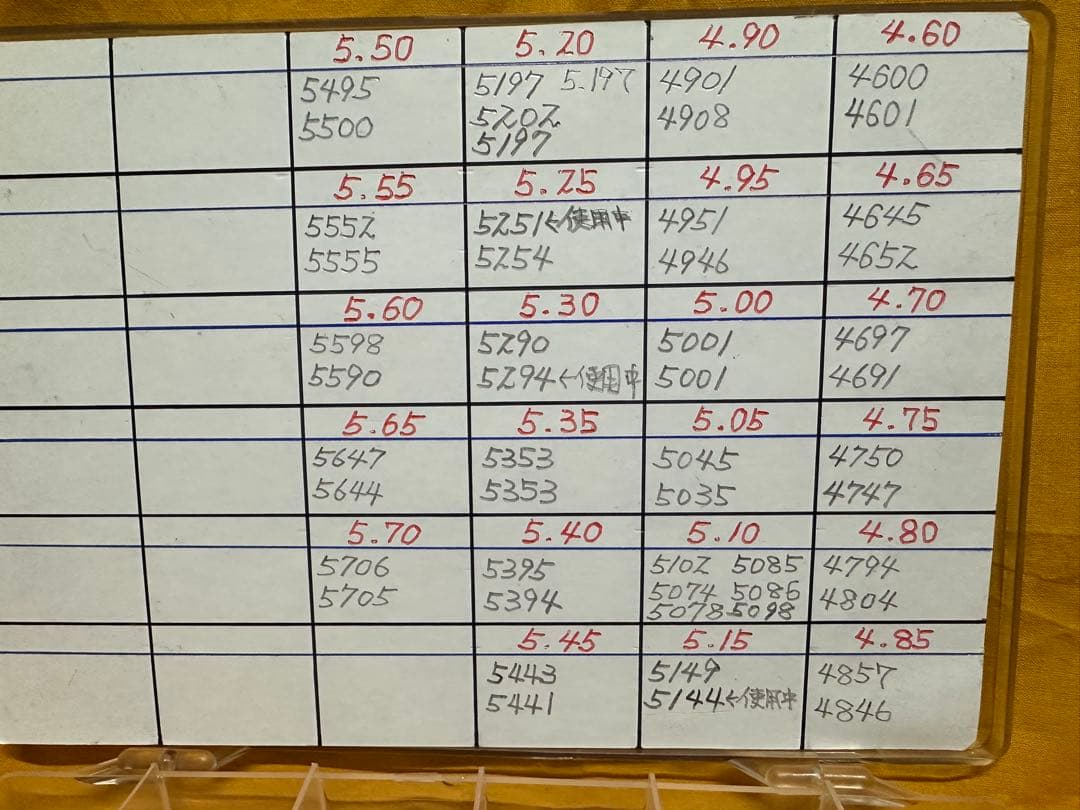 5.50 5.20 4.90 4.60
5495 5197 5.197 4901 4600
5500 5202 4908 4601
5197
5.55 5.25 4.95 4.65
5552 5251←使用中 4951 4645
5555 5254 4946 4652
5.60 5.30 5.00 4.70
5598 5290 5001 4697
5590 5294←使用中 5001 4691
5.65 5.35 5.05 4.75
5647 5353 5045 4750
5644 5353 5035 4747
5.70 5.40 5.10 4.80
5706 5395 5102 5085 4794
5705 5394 5074 5086 4804
5078 5098
5.45 5.15 4.85
5443 5149 4857
5441 5144←使用中 4846